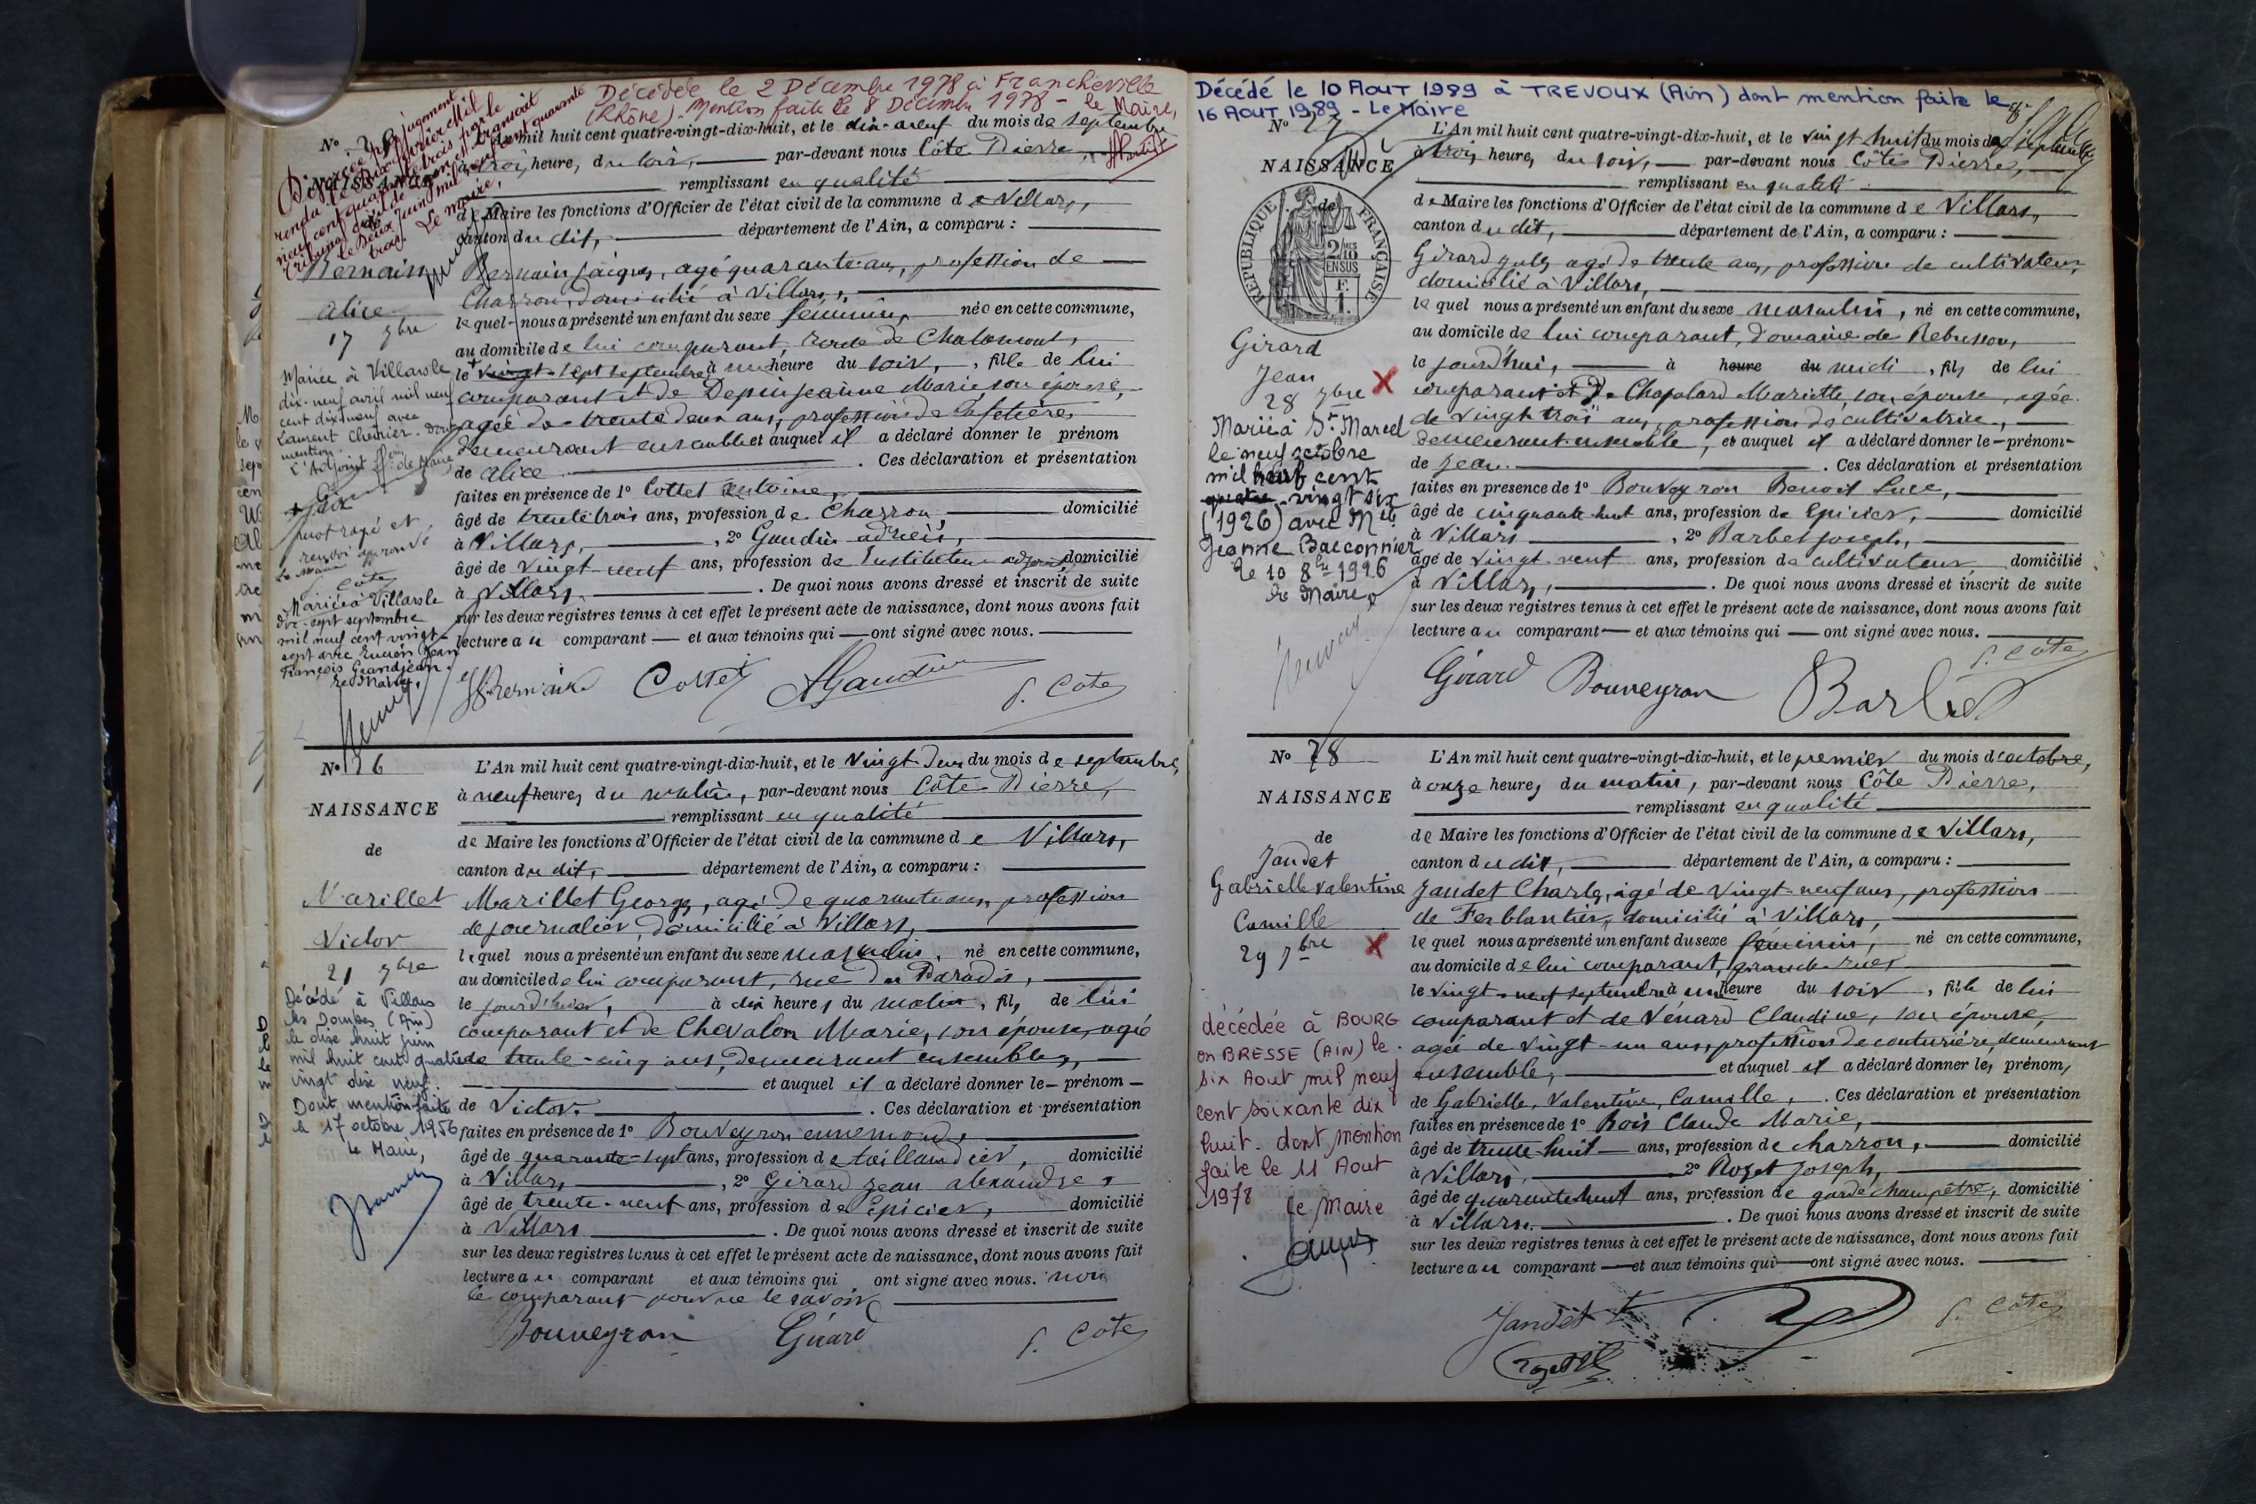 Décédée le 2 Décembre 1978 à Francheville
(Rhône). Mention faite le 8 Décembre 1978 - le Maire,
No
NAISSANCE
L'An mil huit cent quatre-vingt-dix-huit, et le dix-neuf du mois de septembre
à trois heures du soir, par-devant nous Côte Pierre,
remplissant en qualité
de Maire les fonctions d'Officier de l'état civil de la commune de Villars,
canton du dit, département de l'Ain, a comparu :
Bernain Jacques, agé quarante ans, profession de
Charron, domicilié à Villars,
lequel nous a présenté un enfant du sexe féminin, née en cette commune,
au domicile de lui comparant, route de Chalamont,
le vingt-sept septembre à une heure du soir, fille de lui
comparant et de Depin Jeanne Marie son épouse,
agée de trente deux ans, profession de Cafetière,
demeurant ensemble et auquel il a déclaré donner le prénom
de Alice. Ces déclaration et présentation
faites en présence de 1º Cottet Antoine,
âgé de trente trois ans, profession de Charron domicilié
à Villars, 2º Gaudin
âgé de vingt-neuf ans, profession de Instituteur adjoint, domicilié
à Villars. De quoi nous avons dressé et inscrit de suite
sur les deux registres tenus à cet effet le présent acte de naissance, dont nous avons fait
lecture au comparant et aux témoins qui ont signé avec nous.
Bernain Cottet AGaudin P. Côte
Divorcée par jugement
rendu le dix
neuf cent quarante trois par le
Tribunal civil de
le deux juin mil neuf cent quarante
trois. Le maire,
Bernain
Alice
17 7bre
Mariée à Villars le
dix-neuf avril mil neuf
cent dix neuf avec
Laurent Chenier. Dont
mention.
L'Adjoint ff. on de Maire
+ dix
mot rayé et
renvoi approuvé
Le Maire
P. Côte
Mariée à Villars le
dix-sept septembre
mil neuf cent vingt-
sept avec Lucien Jean
François Grandjean.
Le Maire,
No 76
NAISSANCE
de
Marillet
Victor
21 7bre
Décédé à Villars
les Dombes (Ain)
le dix huit juin
mil huit cent quatre
vingt dix neuf.
Dont mention faite
le 17 octobre 1956
Le Maire,
L'An mil huit cent quatre-vingt-dix-huit, et le vingt-deux du mois de septembre,
à neuf heures du matin, par-devant nous Côte Pierre,
remplissant en qualité
de Maire les fonctions d'Officier de l'état civil de la commune de Villars,
canton du dit, département de l'Ain, a comparu :
Marillet Georges, agé de quarante ans, profession
de journalier, domicilié à Villars,
lequel nous a présenté un enfant du sexe masculin, né en cette commune,
au domicile de lui comparant, rue du Paradis,
le jourd'hier, à dix heures du matin, fils de lui
comparant et de Chevalon Marie, son épouse, agée
de trente-cinq ans, demeurant ensemble,
et auquel il a déclaré donner le prénom
de Victor. Ces déclaration et présentation
faites en présence de 1º Bouveyron ennemond,
âgé de quarante-sept ans, profession de taillandier, domicilié
à Villars, 2º Girard Jean alexandre,
âgé de trente-neuf ans, profession de Epicier, domicilié
à Villars. De quoi nous avons dressé et inscrit de suite
sur les deux registres tenus à cet effet le présent acte de naissance, dont nous avons fait
lecture au comparant et aux témoins qui ont signé avec nous. non
le comparant pour ne le savoir
Bouveyron Girard P. Côte
Décédé le 10 AOUT 1989 à TREVOUX (Ain) dont mention faite le
16 AOUT 1989 - Le Maire
No 77
NAISSANCE
de
REPUBLIQUE FRANÇAISE
2/10 ES
EN SUS
F.
1.
Girard
Jean
28 7bre X
Marié à St Marcel
le neuf octobre
mil neuf cent
quatre-vingt six
(1926) avec Mlle
Jeanne Bacconnier
Le 10 8bre 1926
Le Maire
L'An mil huit cent quatre-vingt-dix-huit, et le vingt huit du mois de septembre
à trois heures du soir, par-devant nous Côte Pierre,
remplissant en qualité
de Maire les fonctions d'Officier de l'état civil de la commune de Villars,
canton du dit, département de l'Ain, a comparu :
Girard Jules agé de trente ans, profession de cultivateur,
domicilié à Villars,
lequel nous a présenté un enfant du sexe masculin, né en cette commune,
au domicile de lui comparant, Domaine de Rebusson,
le jourd'hui, à heure du midi, fils de lui
comparant et de Chapolard Mariette son épouse, agée
de vingt trois ans, profession de cultivatrice,
demeurant ensemble, et auquel il a déclaré donner le prénom
de Jean. Ces déclaration et présentation
faites en présence de 1º Bouveyron Benoit Luce,
âgé de cinquante huit ans, profession de Epicier, domicilié
à Villars, 2º Barbet Joseph,
âgé de vingt-neuf ans, profession de cultivateur domicilié
à Villars, De quoi nous avons dressé et inscrit de suite
sur les deux registres tenus à cet effet le présent acte de naissance, dont nous avons fait
lecture au comparant et aux témoins qui ont signé avec nous.
Girard Bouveyron Barbet P. Côte
No 78
NAISSANCE
de
Jandet
Gabrielle Valentine
Camille
29 7bre X
décédée à BOURG
en BRESSE (AIN) le
six Aout mil neuf
cent soixante dix
huit. dont mention
faite le 11 Aout
1978
Le Maire
L'An mil huit cent quatre-vingt-dix-huit, et le premier du mois d'octobre,
à onze heures du matin, par-devant nous Côte Pierre,
remplissant en qualité
de Maire les fonctions d'Officier de l'état civil de la commune de Villars,
canton du dit, département de l'Ain, a comparu :
Jandet Charles, agé de vingt-neuf ans, profession
de Ferblantier, domicilié à Villars,
lequel nous a présenté un enfant du sexe féminin, né en cette commune,
au domicile de lui comparant, grande rue,
le vingt-neuf septembre à une heure du soir, fille de lui
comparant et de Vénard Claudine, son épouse,
agée de vingt-un ans, profession de couturière, demeurant
ensemble, et auquel il a déclaré donner les prénoms
de Gabrielle, Valentine, Camille, . Ces déclaration et présentation
faites en présence de 1º Bois Claude Marie,
âgé de trente-huit ans, profession de charron, domicilié
à Villars, 2º Rozet Joseph,
âgé de quarante huit ans, profession de garde champêtre, domicilié
à Villars. De quoi nous avons dressé et inscrit de suite
sur les deux registres tenus à cet effet le présent acte de naissance, dont nous avons fait
lecture au comparant et aux témoins qui ont signé avec nous.
Jandet P. Côte